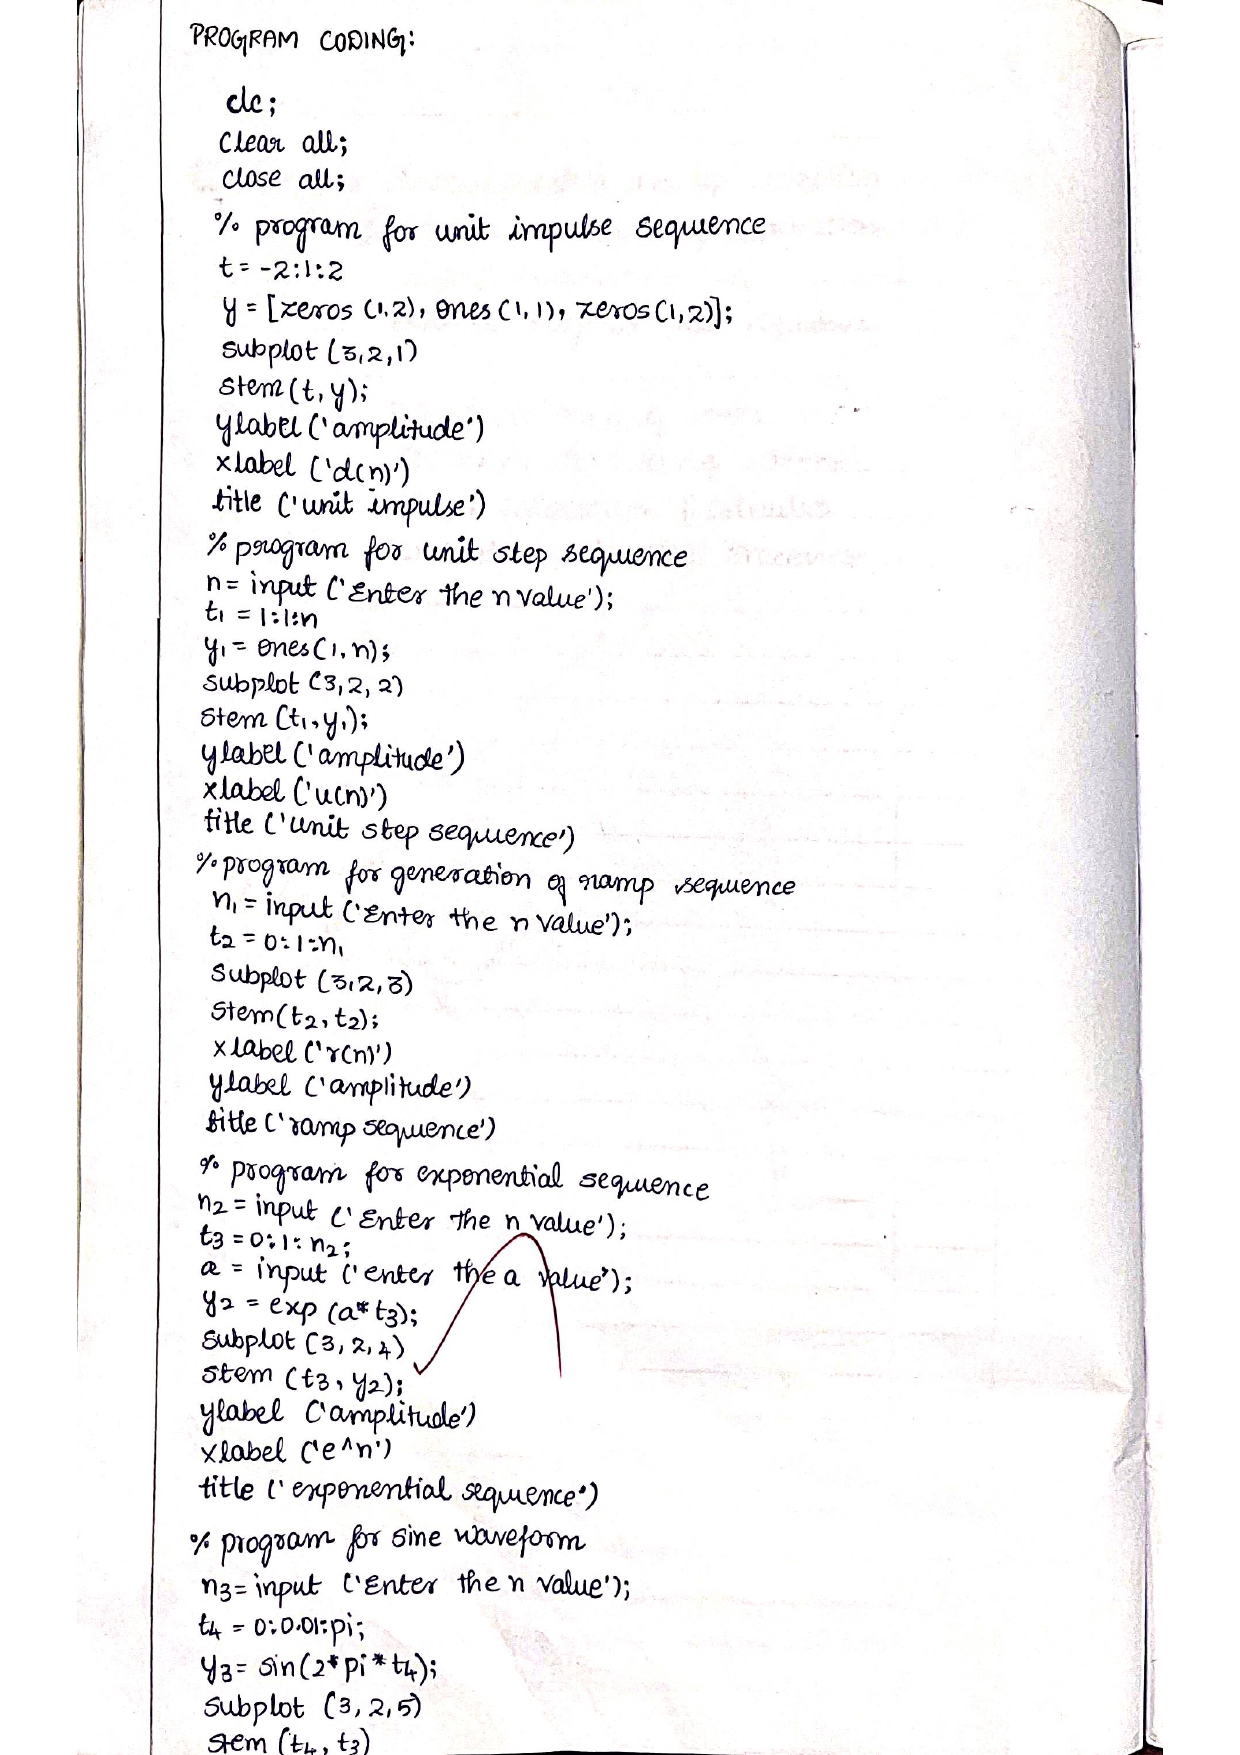 PROGRAM CODING:
clc;
Clear all;
close all;
% program for unit impulse sequence
t = -2:1:2
y = [zeros (1,2), ones (1,1), zeros(1,2)];
Subplot (3,2,1)
Stem(t,y);
ylabel ('amplitude')
xlabel ('d(n)')
title ('unit impulse')
% program for unit step sequence
n = input ('Enter the n value');
t1 = 1:1:n
y1 = ones(1,n);
Subplot (3,2,2)
Stem (t1,y1);
ylabel ('amplitude')
xlabel ('u(n)')
title ('unit step sequence')
% program for generation of ramp sequence
n1 = input ('Enter the n value');
t2 = 0:1:n1
Subplot (3,2,3)
Stem(t2,t2);
xlabel ('r(n)')
ylabel ('amplitude')
title ('ramp sequence')
% program for exponential sequence
n2 = input ('Enter the n value');
t3 = 0:1:n2;
a = input ('enter the a value');
y2 = exp (a*t3);
Subplot (3,2,4)
stem (t3,y2);
ylabel ('amplitude')
xlabel ('e^n')
title ('exponential sequence')
% program for sine waveform
n3 = input ('Enter the n value');
t4 = 0:0.01:pi;
y3 = sin(2*pi*t4);
Subplot (3,2,5)
stem (t4,t3)